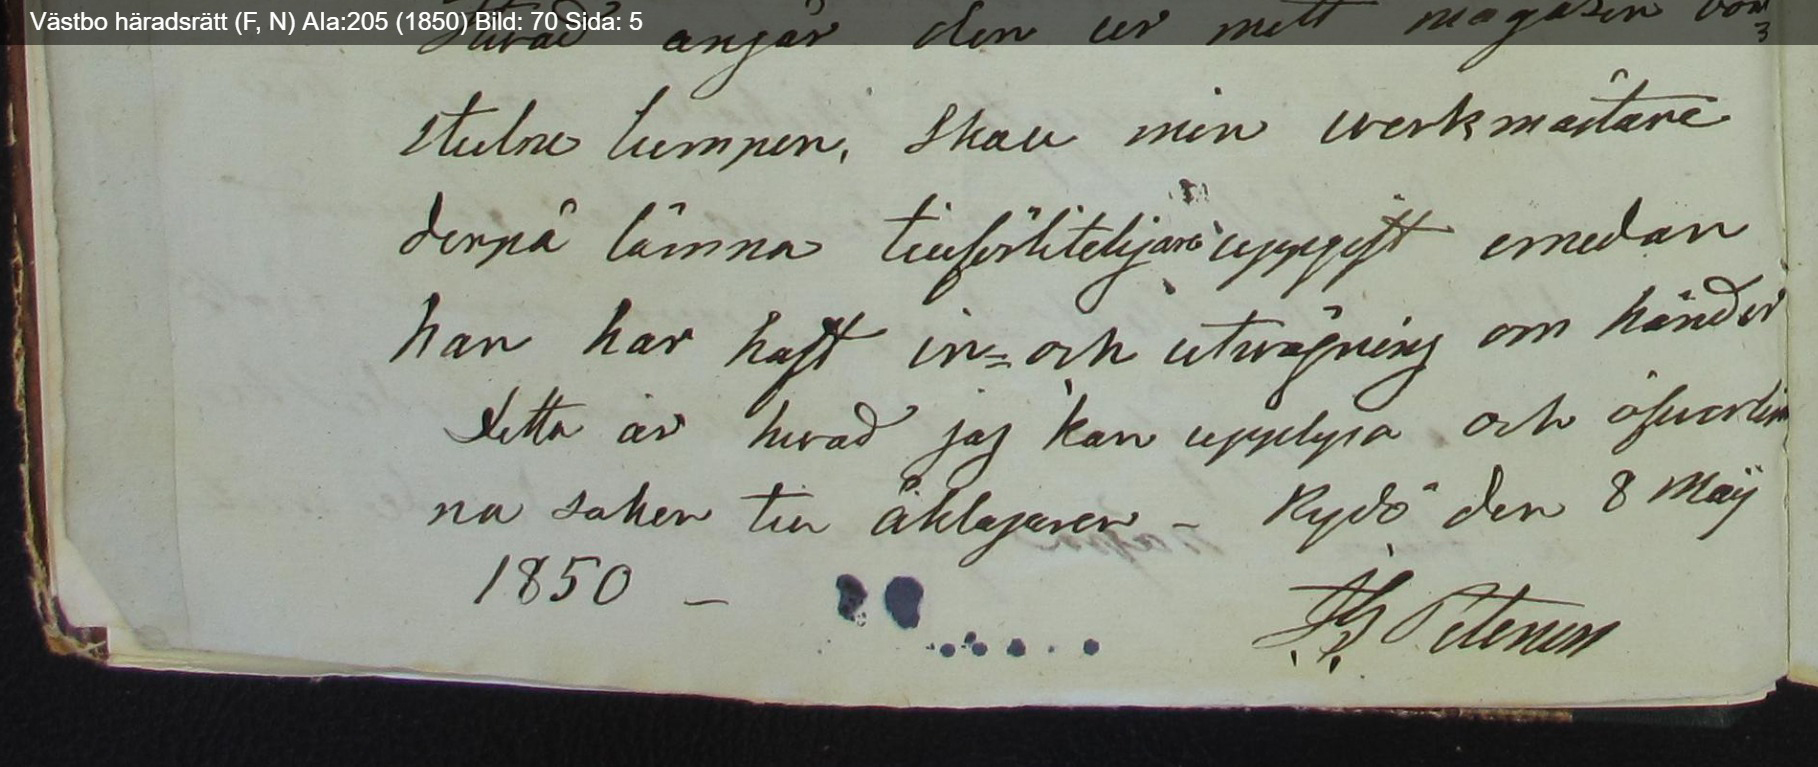 Västbo häradsrätt (F, N) AIa:205 (1850) Bild: 70 Sida: 5
Hvad angår den ur mitt magasin bort
stulne lumpen, skall min werkmästare
derpå lämna tillförliteligare uppgift emedan
han har haft in= och utvägning om händer
Detta är hvad jag kan upplysa och öfverlem
na saken till åklagaren – Rydö den 8 Maij
1850 –
Peterson